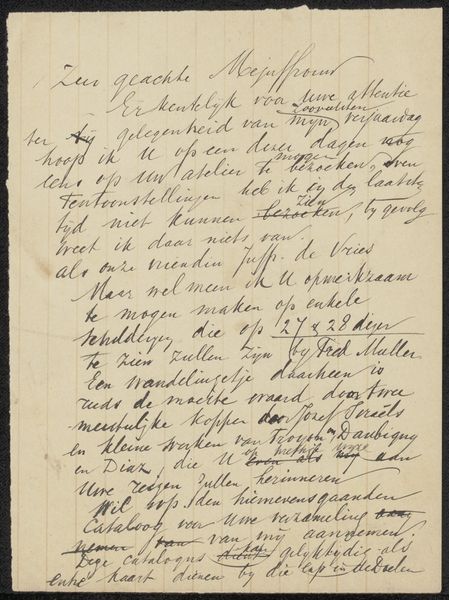 Zeer geachte Mejuffrouw
Erkentelijk voor uwe attentie
ter gelegenheid van mijn verjaardag
hoop ik U op een dezer dagen nog
eens op uw atelier te mogen bezoeken, over
tentoonstellingen heb ik in den laatste
tijd niet kunnen zien bezoeken, bij gevolg
weet ik daar niets van.
als onze vrienden Juffr. de Vries
Maar wel meen ik U opmerkzaam
te mogen maken op enkele
schilderijen die op 27 & 28 dezer
te zien zullen zijn bij Fred Muller
Een wandelingetje daarheen is
reeds de moeite waard door twee
meesterlijke koppen door Jozef Israëls
en kleine werken van Troyon, Daubigny
en Diaz, die U even als mij aan
Uwe reizen zullen herinneren
Wil svp. den hiernevensgaanden
Cataloog voor Uwe verzameling
van mij aannemen.
Deze catalogus kan gelijktydig als
entre kaart dienen by die exp in de Doelen